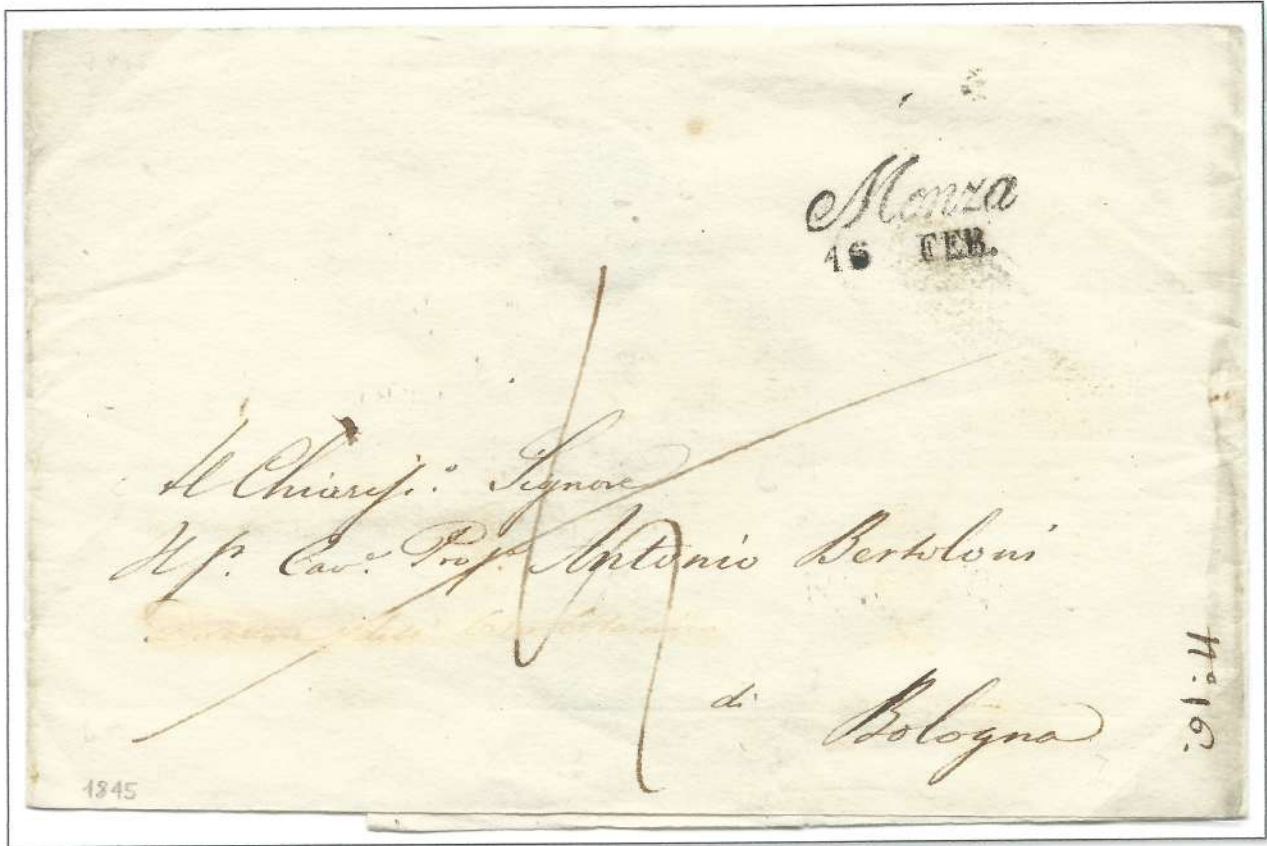 Monza
16 FEB.
Al Chiariss.º Signore
Il Sr. Cave. Profr. Antonio Bertoloni
di
Bologna
1845